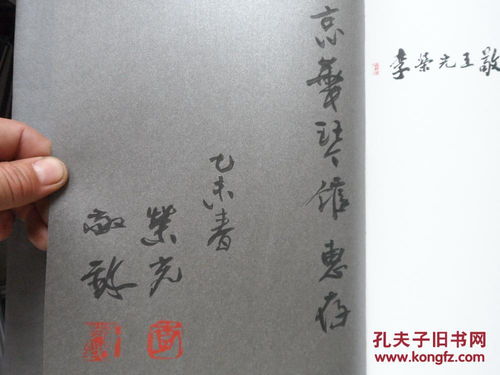 京華琴 惠存
乙未春
榮光
敬
李榮光王敬
孔夫子旧书网
www.kongfz.com